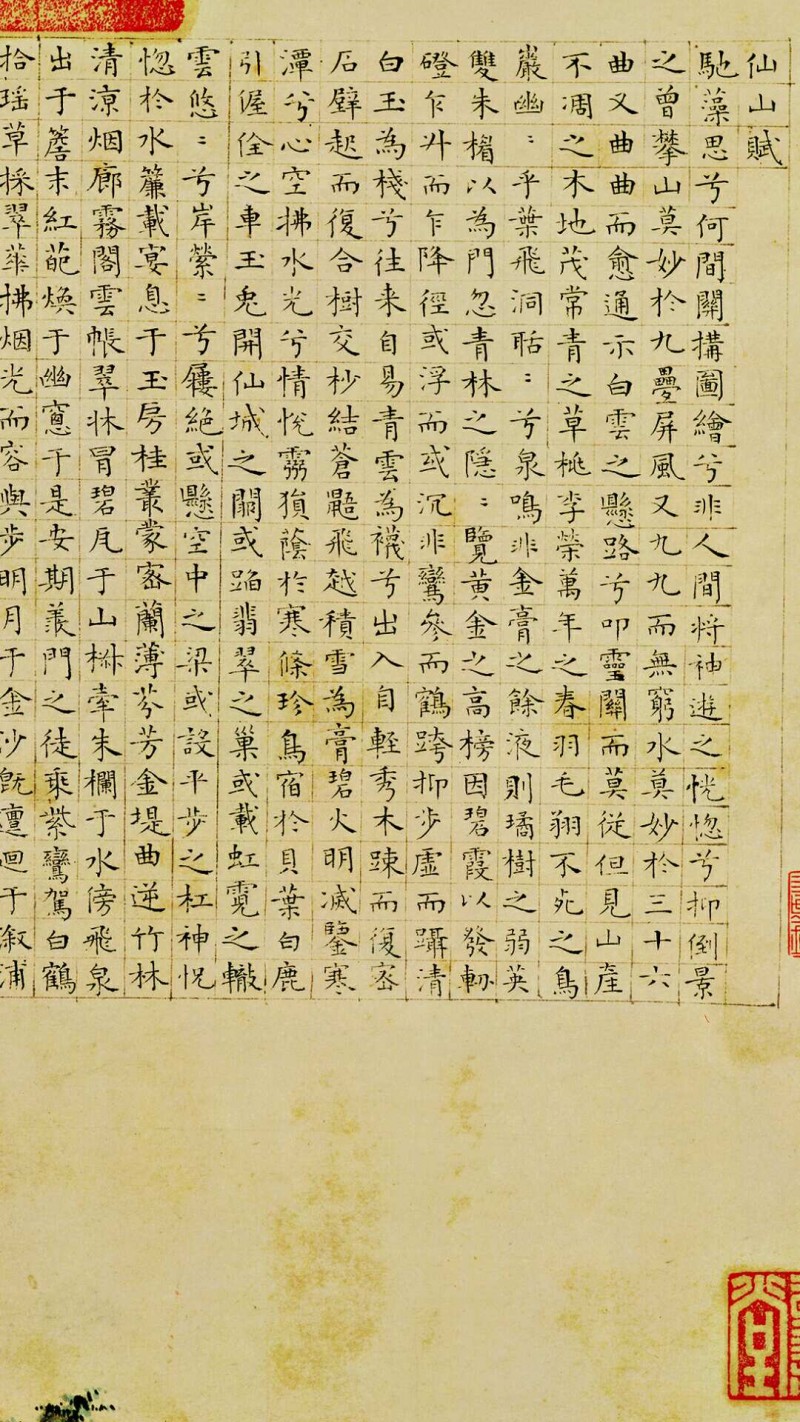 仙山賦
馳藻思兮何間關搆圖繪兮非人間將神遊之恍惚兮抑倒景
之曾攀山莫妙於九疊屏風又九九而無窮水莫妙於三十六
曲又曲曲而愈通示白雲之懸路兮叩靈關而莫從但見山產
不凋之木地茂常青之草桃李榮萬年之春羽毛翔不死之鳥
巖幽〻乎葉飛洞聒〻兮泉鳴非金膏之餘液則璚樹之弱英
雙朱楣以為門忽青林之隱〻覽黃金之高榜因碧霞以發軔
磴乍升而乍降徑或浮而或沉非鸞參而鶴跨抑步虛而躡清
白玉為棧兮往来自易青雲為襪兮出入自輕秀木踈而復密
石壁起而復合樹交杪結蒼鼯飛越積雪為膏碧火明滅鑒寒
潭兮心空拂水光兮情悅霧㺅蔭於寒條珍鳥宿於貝葉白鹿
引偓佺之車玉兔開仙城之關或蹈翡翠之巢或載虹霓之轍
雲悠〻兮岸縈〻兮屨絕或懸空中之梁或設平步之杠神怳
惚於水簾載宴息于玉房桂叢蒙密蘭薄芬芳金堤曲逆竹林
清涼烟廊霧閣雲帳翠牀冐碧瓦于山椒牽朱欄于水傍飛泉
出于簷末紅葩焕于幽窻于是安期羨門之徒乘紫鸞駕白鶴
拾瑶草採翠華拂烟光而容與步明月于金沙既邅迴于溆浦